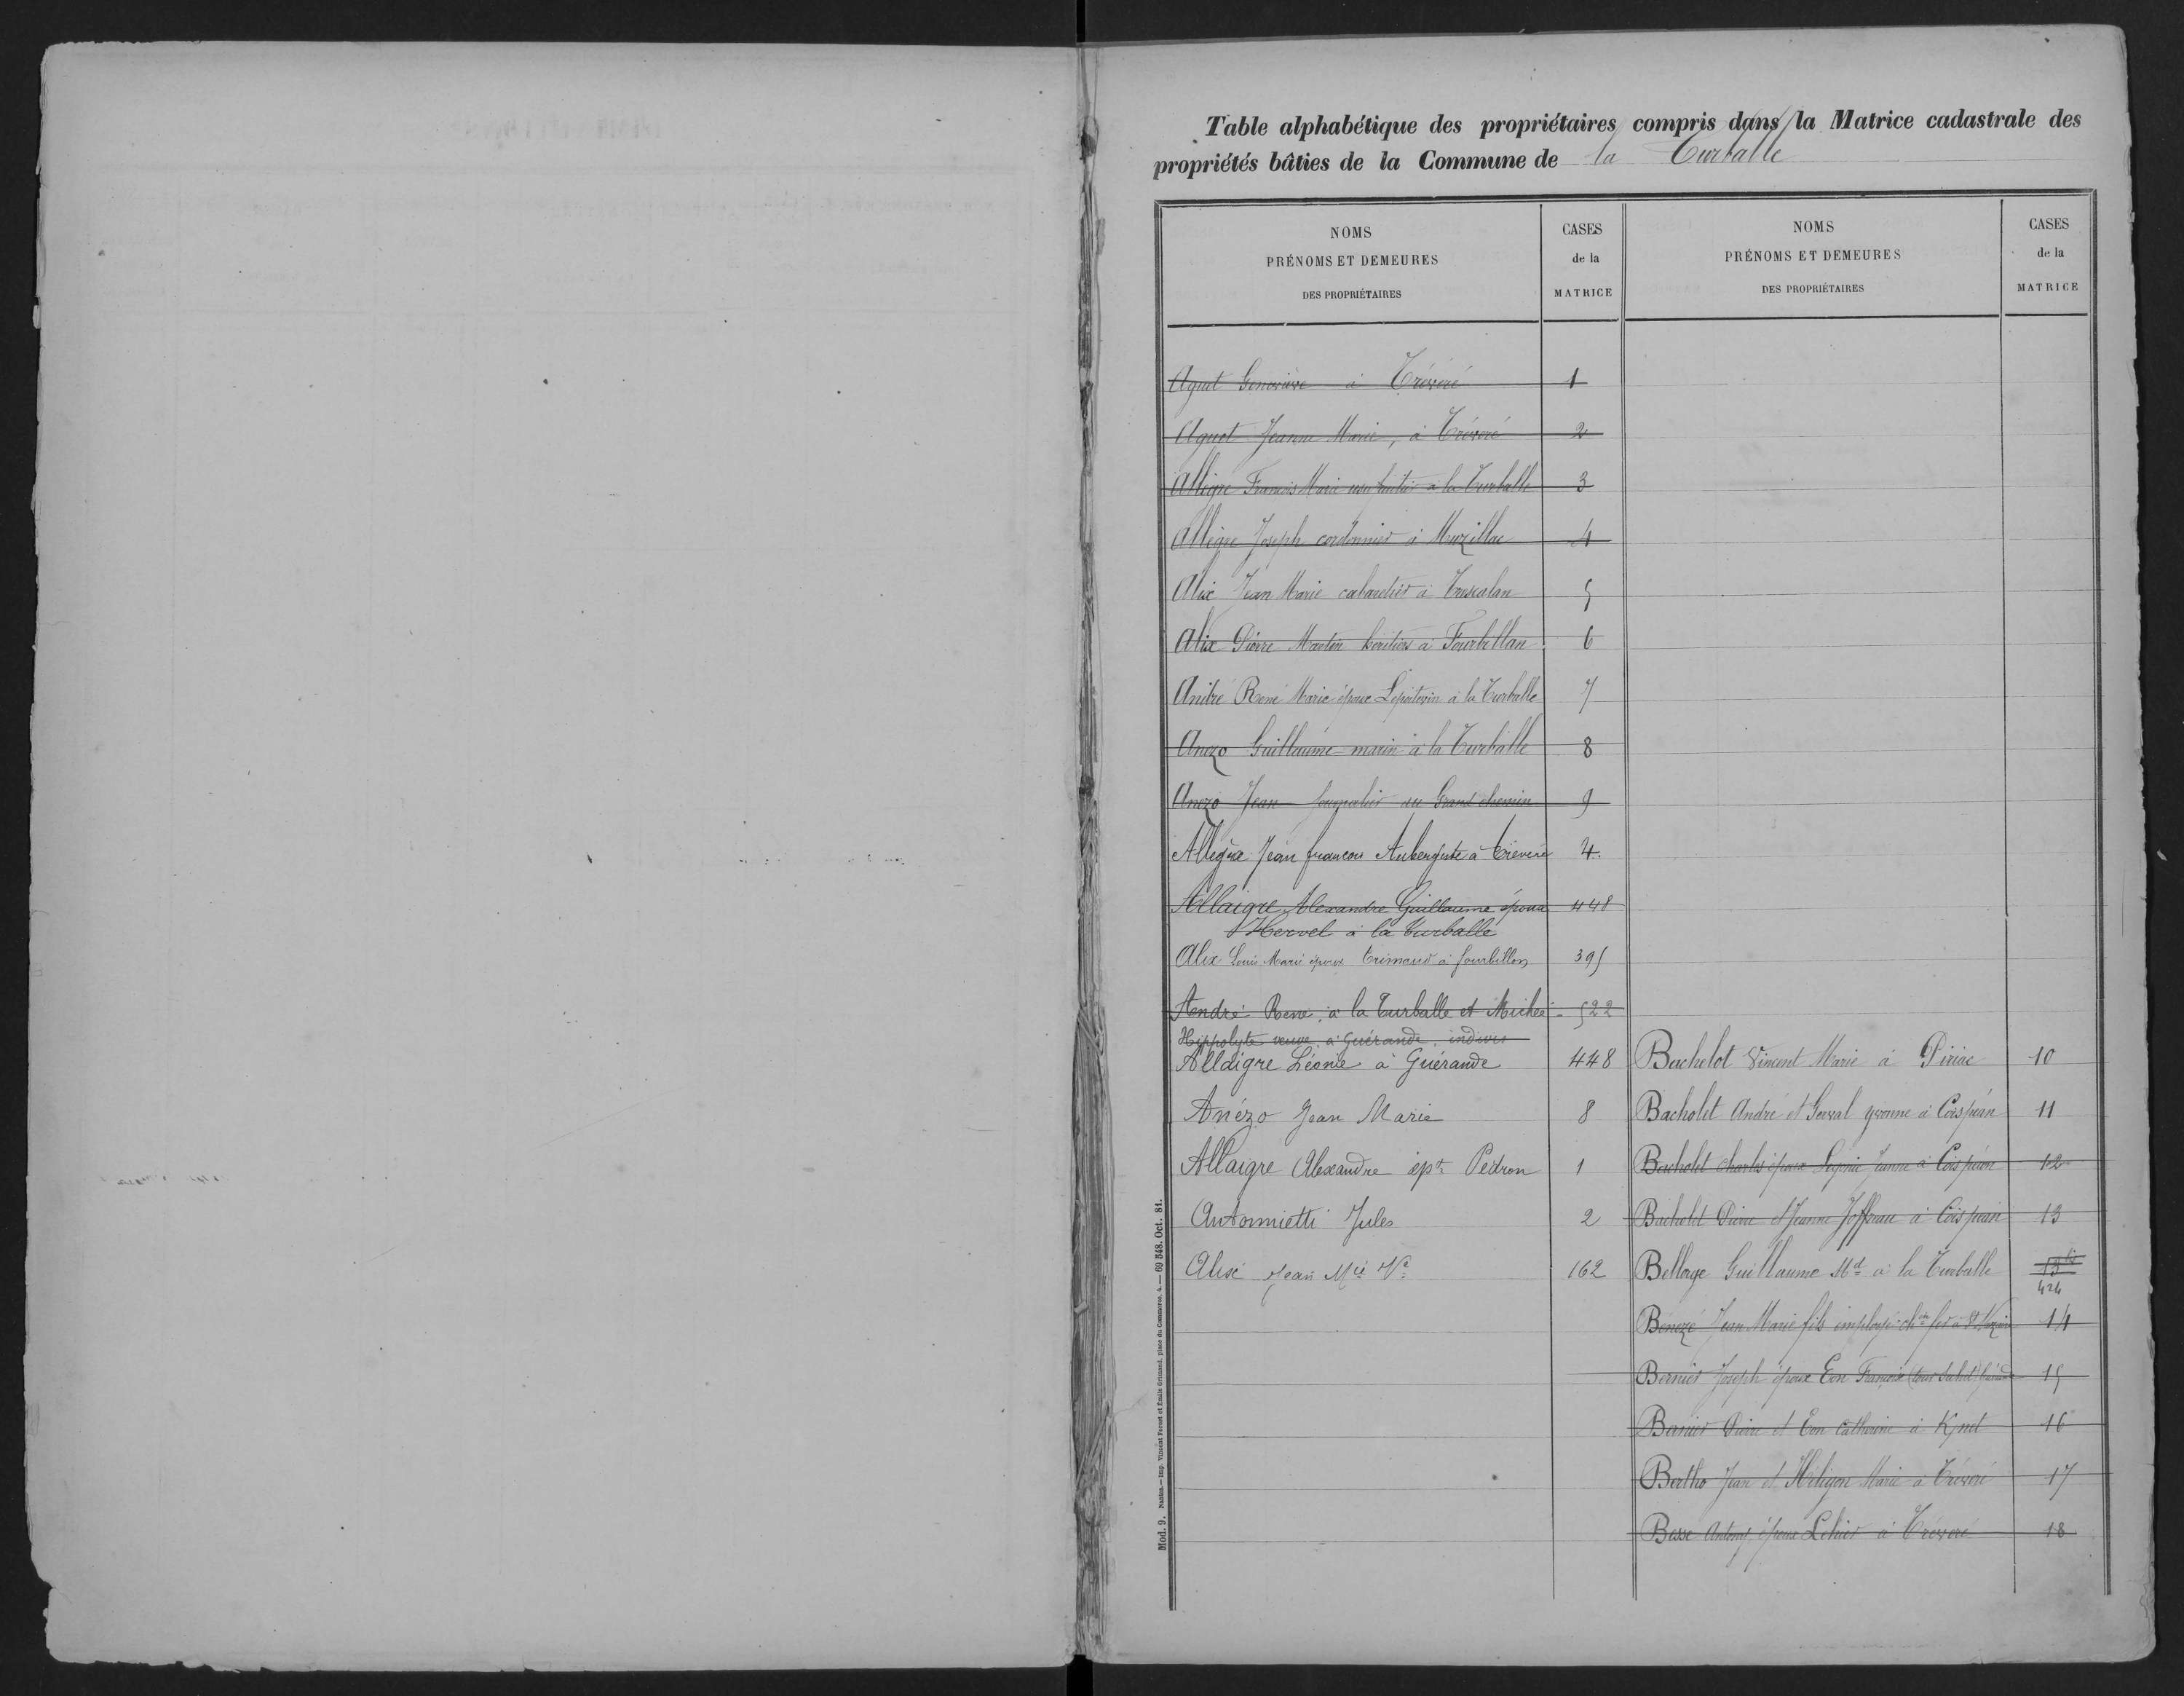 Table alphabétique des propriétaires compris dans la Matrice cadastrale des
propriétés bâties de la Commune de la Turballe
NOMS
PRÉNOMS ET DEMEURES
DES PROPRIÉTAIRES
CASES
de la
MATRICE
NOMS
PRÉNOMS ET DEMEURES
DES PROPRIÉTAIRES
CASES
de la
MATRICE
Aguet Geneviève à Tréveré 1
Aguet Jeanne Marie, à Tréveré 2
Allègre François Marie usufruitier à la Turballe 3
Allègre Joseph cordonnier à Muzillac 4
Alix Jean Marie cabaretier à Trescalan 5
Alix Pierre Martin héritiers à Fourbillan 6
André René Marie époux Lepoitevin à la Turballe 7
Anezo Guillaume marin à la Turballe 8
Anezo Jean journalier au Grand chemin 9
Allegre Jean francois Aubergiste à Trévéré 4.
Allaigre Alexandre Guillaume époux 448
Hervel à la Turballe
Alix Louis Marie époux Trimaud à fourbillon 395
André René à la Turballe et Michel 522
Hippolyte veuve à Guérande indivis
Alldigre Léonie à Guérande 448
Anézo Jean Marie 8
Allaigre Alexandre épx Pedron 1
Antonnietti Jules 2
Alix Jean Mie Ve 162
Bachelot Vincent Marie à Piriac 10
Bachelet André et Gerval yvonne à Coispéan 11
Bachelet charles époux Jeanne à Coispéan 12
Bachelet Pierre et Jeanne Joffreau à Coispéan 13
Bellorge Guillaume Md à la Turballe 13 bis
424
Bénezé Jean Marie fils employé chin fer à St Nazaire 14
Bernier Joseph époux Eon Françoise 15
Bernier Pierre et Eon Catherine à Kjnet 16
Bertho Jean et Héligon Marie à Tréveré 17
Besse époux Lehier à Tréveré 18
Mod. 9. Nantes.—Imp. Vincent Forest et Émile Grimaud, place du Commerce, 4.— 69 548. Oct. 81.